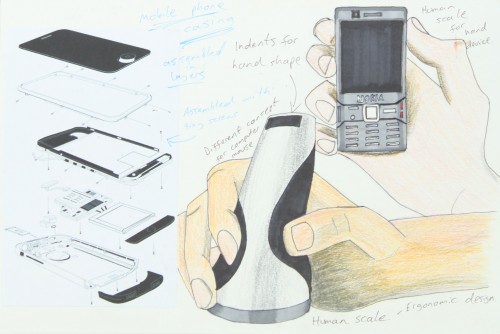 mobile phone
casing
assembled
in
layers
Assembled with
tiny screws
Indents for
hand shape
Different concept
for computer
mouse
Human
scale
for hand
device
Human scale - Ergonomic design